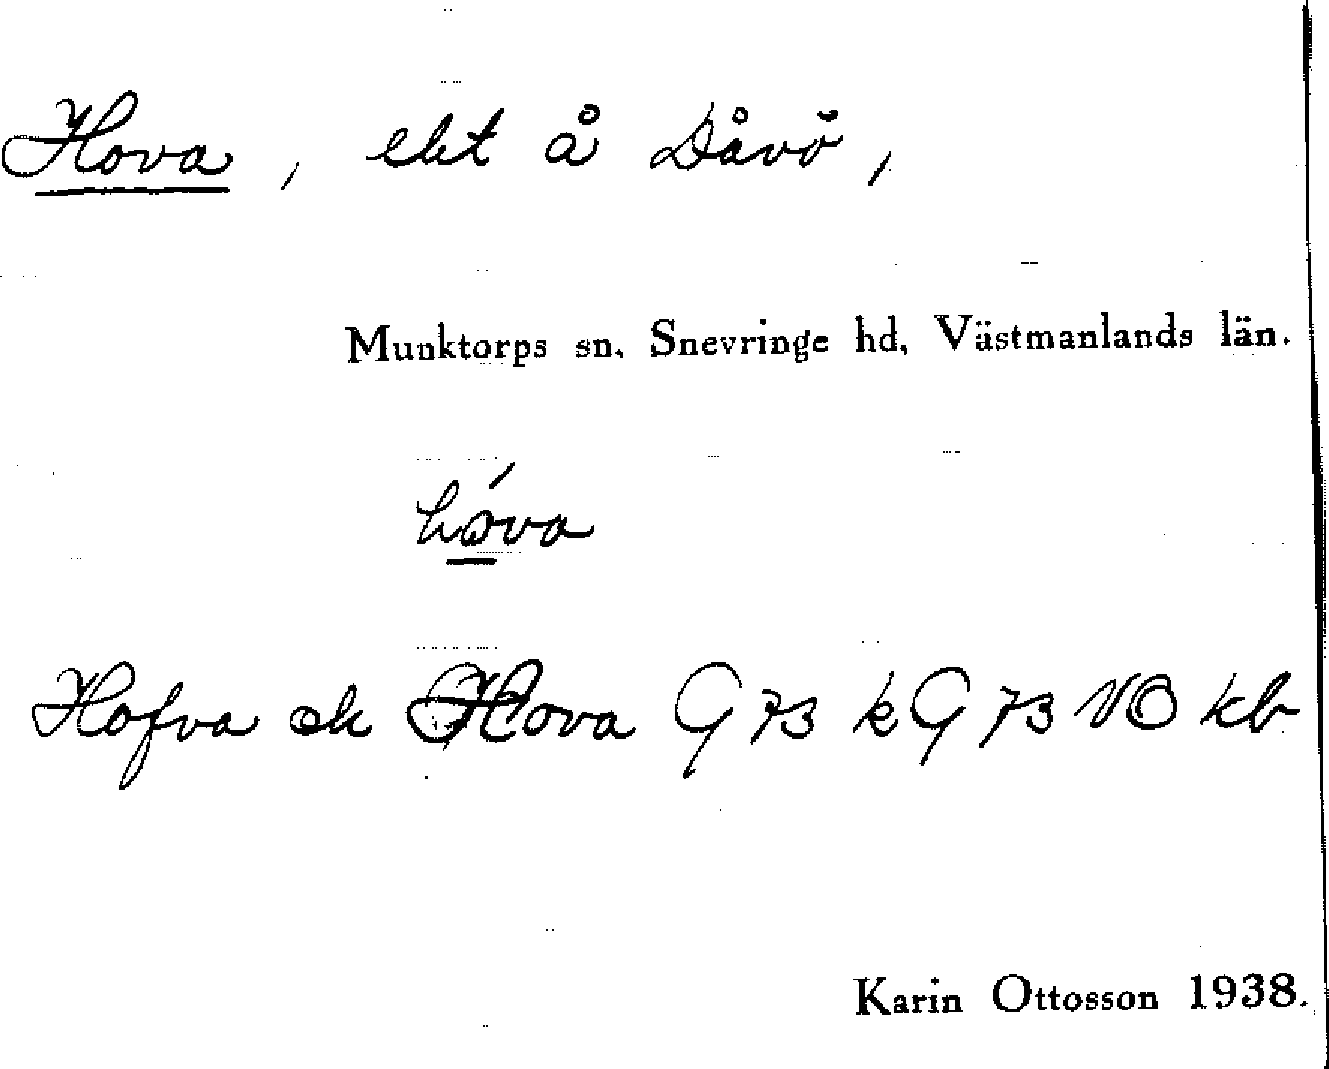 Hova, ekt å Dåvö,
Munktorps sn. Snevringe hd, Västmanlands län.
hó̱va
Hofva ek Hova G 73 k G 73 NB kb
Karin Ottosson 1938.